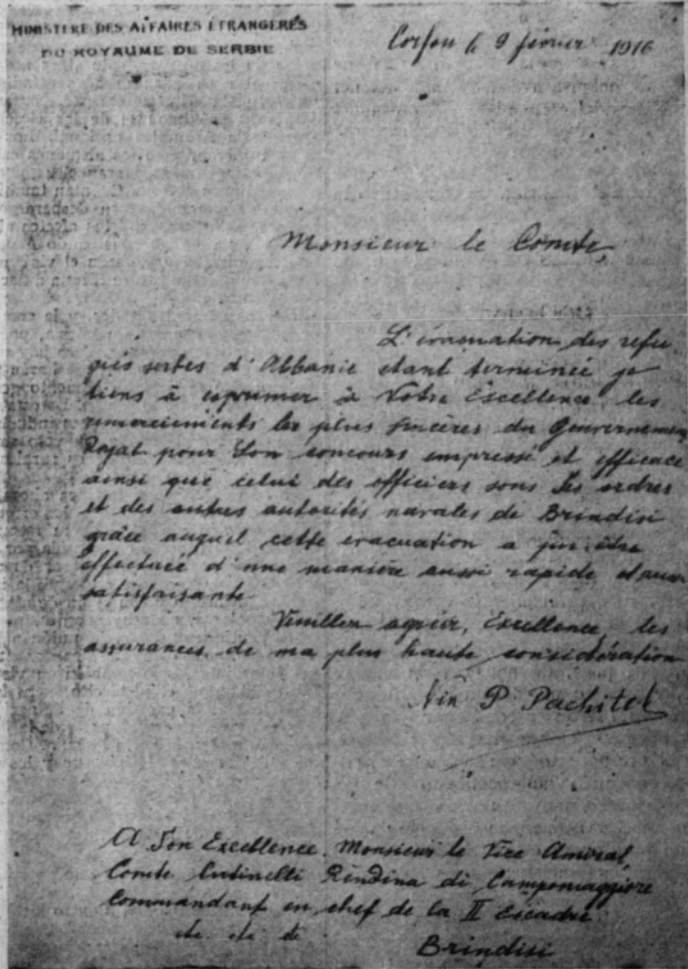 MINISTERE DES AFFAIRES ETRANGERES
DU ROYAUME DE SERBIE
Corfou le 9 février 1916
Monsieur le Comte,
L'évacuation des refu
giés serbes d'Albanie étant terminée je
tiens à exprimer à Votre Excellence les
remerciements les plus sincères du Gouvernement
Royal pour Son concours empressé et efficace
ainsi que celui des officiers sous Ses ordres
et des autres autorités navales de Brindisi
grâce auquel cette évacuation a pu être
effectuée d'une manière aussi rapide et aussi
satisfaisante
Veuillez agréer, Excellence, les
assurances de ma plus haute considération
Nik P. Pachitch
A Son Excellence Monsieur le Vice Amiral,
Comte Cutinelli Rendina di Campomaggiore
Commandant en chef de la II Escadre
Brindisi